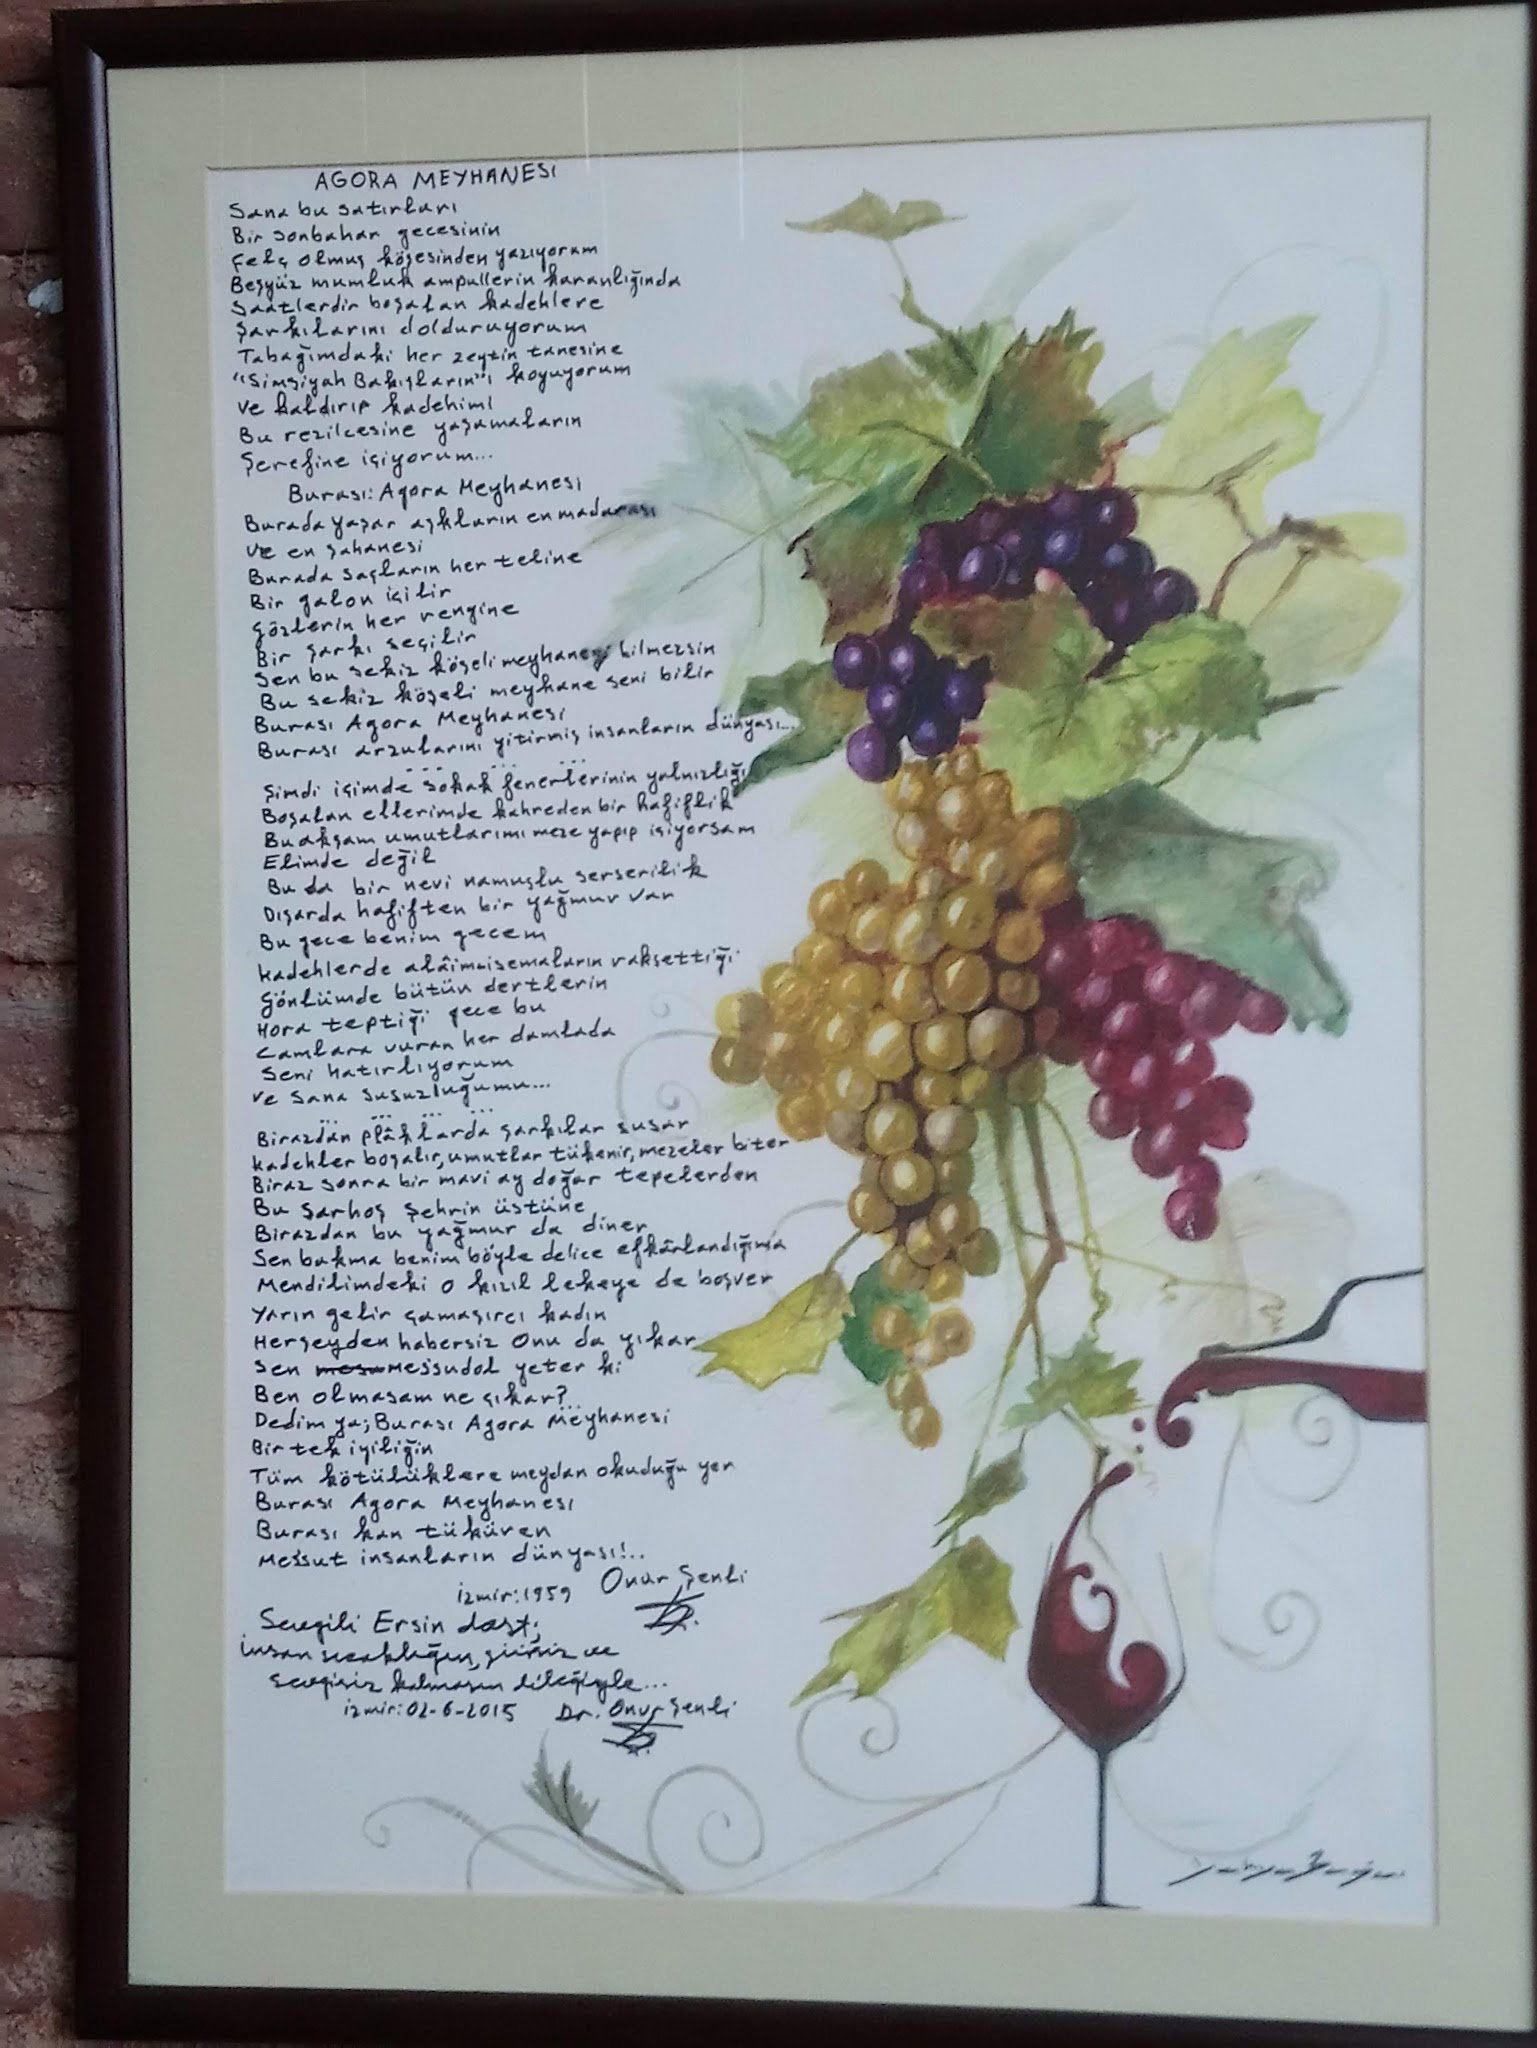 AGORA MEYHANESİ
Sana bu satırları
Bir sonbahar gecesinin
Felç olmuş köşesinden yazıyorum
Beşyüz mumluk ampullerin karanlığında
Saatlerdir boşalan kadehlere
Şarkılarını dolduruyorum
Tabağımdaki her zeytin tanesine
"Simsiyah Bakışların"ı koyuyorum
Ve kaldırıp kadehimi
Bu rezilcesine yaşamaların
Şerefine içiyorum...
Burası: Agora Meyhanesi
Burada yaşar aşkların en madarası
Ve en şahanesi
Burada saçların her teline
Bir galon içilir
Gözlerin her rengine
Bir şarkı seçilir
Sen bu sekiz köşeli meyhaneyi bilmezsin
Bu sekiz köşeli meyhane seni bilir
Burası Agora Meyhanesi
Burası arzularını yitirmiş insanların dünyası...
... ... ...
Şimdi içimde sokak fenerlerinin yalnızlığı
Boşalan ellerimde kahreden bir hafiflik
Bu akşam umutlarımı meze yapıp içiyorsam
Elimde değil
Bu da bir nevi namuslu serserilik
Dışarda hafiften bir yağmur var
Bu gece benim gecem
Kadehlerde alâimisemaların raksettiği
Gönlümde bütün dertlerin
Hora teptiği gece bu
Camlara vuran her damlada
Seni hatırlıyorum
Ve sana susuzluğumu...
... ... ... ...
Birazdan plâklarda şarkılar susar
Kadehler boşalır, umutlar tükenir, mezeler biter
Biraz sonra bir mavi ay doğar tepelerden
Bu Sarhoş Şehrin üstüne
Birazdan bu yağmur da diner
Sen bakma benim böyle delice efkârlandığıma
Mendilimdeki o kızıl lekeye de boşver
Yarın gelir çamaşırcı kadın
Herşeyden habersiz Onu da yıkar
Sen Mes'sudol yeter ki
Ben olmasam ne çıkar?
...
Dedim ya; Burası Agora Meyhanesi
Bir tek iyiliğin
Tüm kötülüklere meydan okuduğu yer
Burası Agora Meyhanesi
Burası kan tüküren
Mes'sut insanların dünyası!..
İzmir: 1959 Onur Şenli
Sevgili Ersin dost;
İnsan sıcaklığın, şiirsiz ve
sevgisiz kalmasın dileğiyle...
İzmir: 02-6-2015 Dr. Onur Şenli